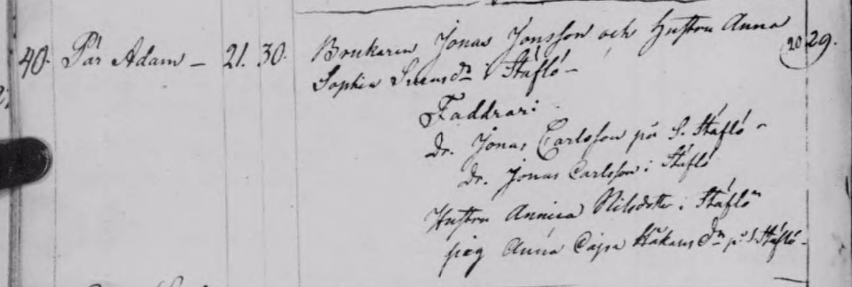 40. Pär Adam – 21. 30. Brukaren Jonas Jonsson och Hustru Anna 20 29.
Sophia Svensdr i Stäflö –
Faddrar:
Dr. Jonas Carlsson på S. Stäflö –
Dr. Jonas Carlsson i Stäflö
Hustru Annica Nilsdotter i Stäflö
pig Anna Cajsa Håkansdr på S. Stäflö –